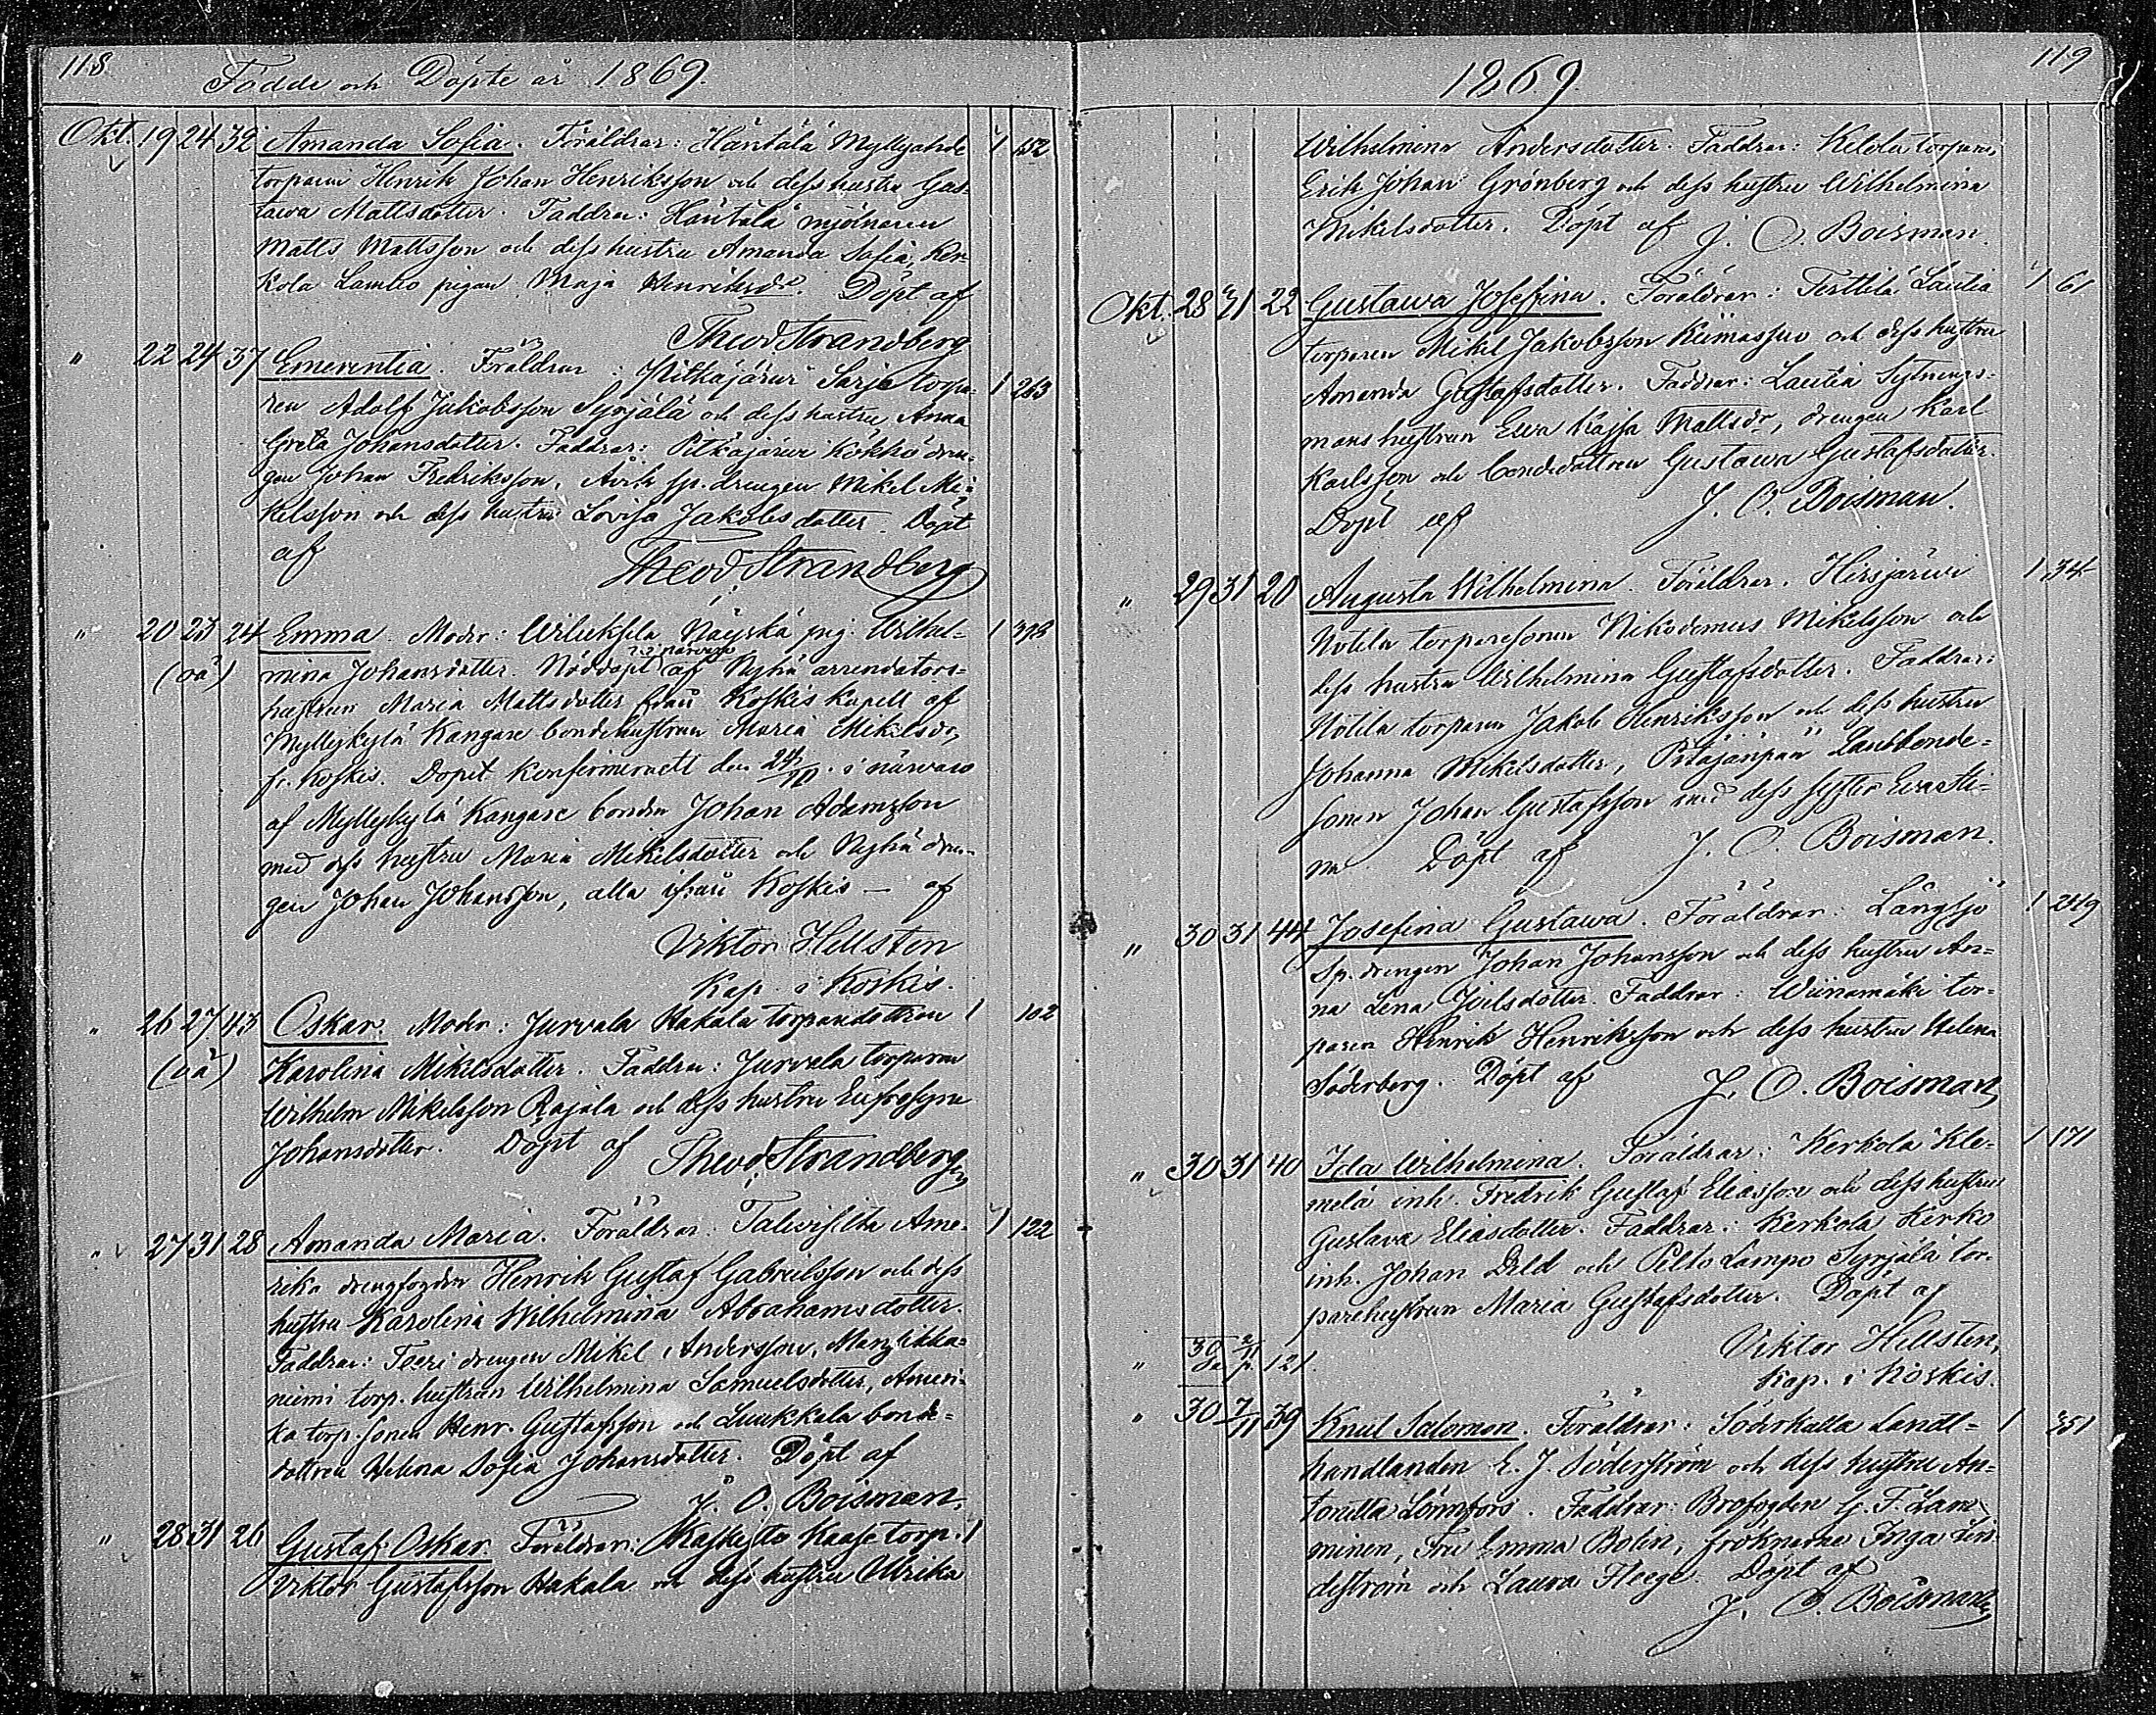 118
Födde och Döpte år 1869.
Okt. 19 24 32 Amanda Sofia. Föräldrar: Häntälä Myllyahde 1 652
torparen Henrik Johan Henriksson och dess hustru Gus-
tawa Mattsdotter. Faddrar: Häntälä mjölnaren
Matts Mattsson och dess hustru Amanda Sofia, Ker-
kola Lambo pigan Maja Henriksdr. Döpt af
Theod Strandberg
" 22 24 37 Emerentia. Föräldrar: Pitkäjärwi Sarje torpa- 1 263
ren Adolf Jakobsson Syrjälä och dess hustru Anna
Greta Johansdotter. Faddrar: Pitkäjärwi Kökkö dren-
gen Johan Fredriksson, Åvik sp. drengen Mikel Mi-
kelsson och dess hustru Lovisa Jakobsdotter. Döpt
af Theod Strandberg
" 20 23 24 Emma. Moder: Wiluksela Näyskä pig. Wilhel- 1 398
(oä) mina Johansdotter. Nöddöpt i närvaro af Nyhä arrendators-
hustrun Maria Mattsdotter från Koskis Kapell af
Myllykylä Kangare bondehustrun Maria Mikelsdr,
fr. Koskis. Dopet konfirmeradt den 24/10 i närvaro
af Myllykylä Kangare bonden Johan Adamsson
med dess hustru Maria Mikelsdotter och Nyhä dren-
gen Johan Johansson, alla ifrån Koskis — af
Viktor Hellsten
Kap. i Koskis.
" 26 27 43 Oskar. Moder: Jurvala Hakala torparedottren 1 102
(oä) Karolina Mikelsdotter. Faddrar: Jurvala torparen
Wilhelm Mikelsson Rajala och dess hustru Eufrosyne
Johansdotter. Döpt af Theod Strandberg
" 27 31 28 Amanda Maria. Föräldrar: Talwisilta Ame- 1 122
rika drengfogden Henrik Gustaf Gabrielsson och dess
hustru Karolina Wilhelmina Abrahamsdotter.
Faddrar: Teeri drengen Mikel Andersson,
niemi torp. hustrun Wilhelmina Samuelsdotter, Ameri-
ka torp. sonen Henr. Gustafsson och Luukkala bonde-
dottren Helena Sofia Johansdotter. Döpt af
J. O. Boisman.
" 28 31 26 Gustaf Oskar. Föräldrar: Kaskisto Kaase torp. 1
Viktor Gustafsson Hakala och dess hustru Ulrika
119
1869.
Wilhelmina Andersdotter. Faddrar: Kelola torparen
Erik Johan Grönberg och dess hustru Wilhelmina
Mikelsdotter. Döpt af J. O. Boisman.
Okt. 28 31 22 Gustawa Josefina. Föräldrar: Terttilä Lautia 1 61
torparen Mikel Jakobsson Keimassuo och dess hustru
Amanda Gustafsdotter. Faddrar: Lautia Sytnings-
mans hustrun Ewa Kajsa Mattsdr, drengen Karl
Karlsson och bondedottren Gustawa Gustafsdotter.
Döpt af J. O. Boisman.
" 29 31 20 Augusta Wilhelmina. Föräldrar: Hirsjärwi 1 34
Notila torparesonen Nikodemus Mikelsson och
dess hustru Wilhelmina Gustafsdotter. Faddrar:
Notila torparen Jakob Henriksson och dess hustru
Johanna Mikelsdotter, Pitäjänpää Landbonde-
sonen Johan Gustafsson med dess syster Ewasti-
na. Döpt af J. O. Boisman.
" 30 31 44 Josefina Gustawa. Föräldrar: Långsjö 1 249
Sp. drengen Johan Johansson och dess hustru An-
na Lena Joelsdotter. Faddrar: Wiinamäki tor-
paren Henrik Henriksson och dess hustru Helena
Söderberg. Döpt af J. O. Boisman
" 30 31 40 Ida Wilhelmina. Föräldrar: Kerkola Kle- 1 171
melä inh. Fredrik Gustaf Eliasson och dess hustru
Gustava Eliasdotter. Faddrar: Kerkola Kerko
inh. Johan Dild och Pelto Lampo Syrjälä tor-
parehustrun Maria Gustafsdotter. Döpt af
Viktor Hellsten,
Kap. i Koskis.
" 30 2/11 121
" 30 7/11 39 Knut Salomon. Föräldrar: Söderkulla Landt- 1 351
handlanden E. J. Söderström och dess hustru An-
tonilla Lönnfors. Faddrar: Brofogden G. F. Lam-
minen, Fru Emma Bolin, fröknarne Inga Lin-
deström och Laura Heege. Döpt af
J. O. Boisman